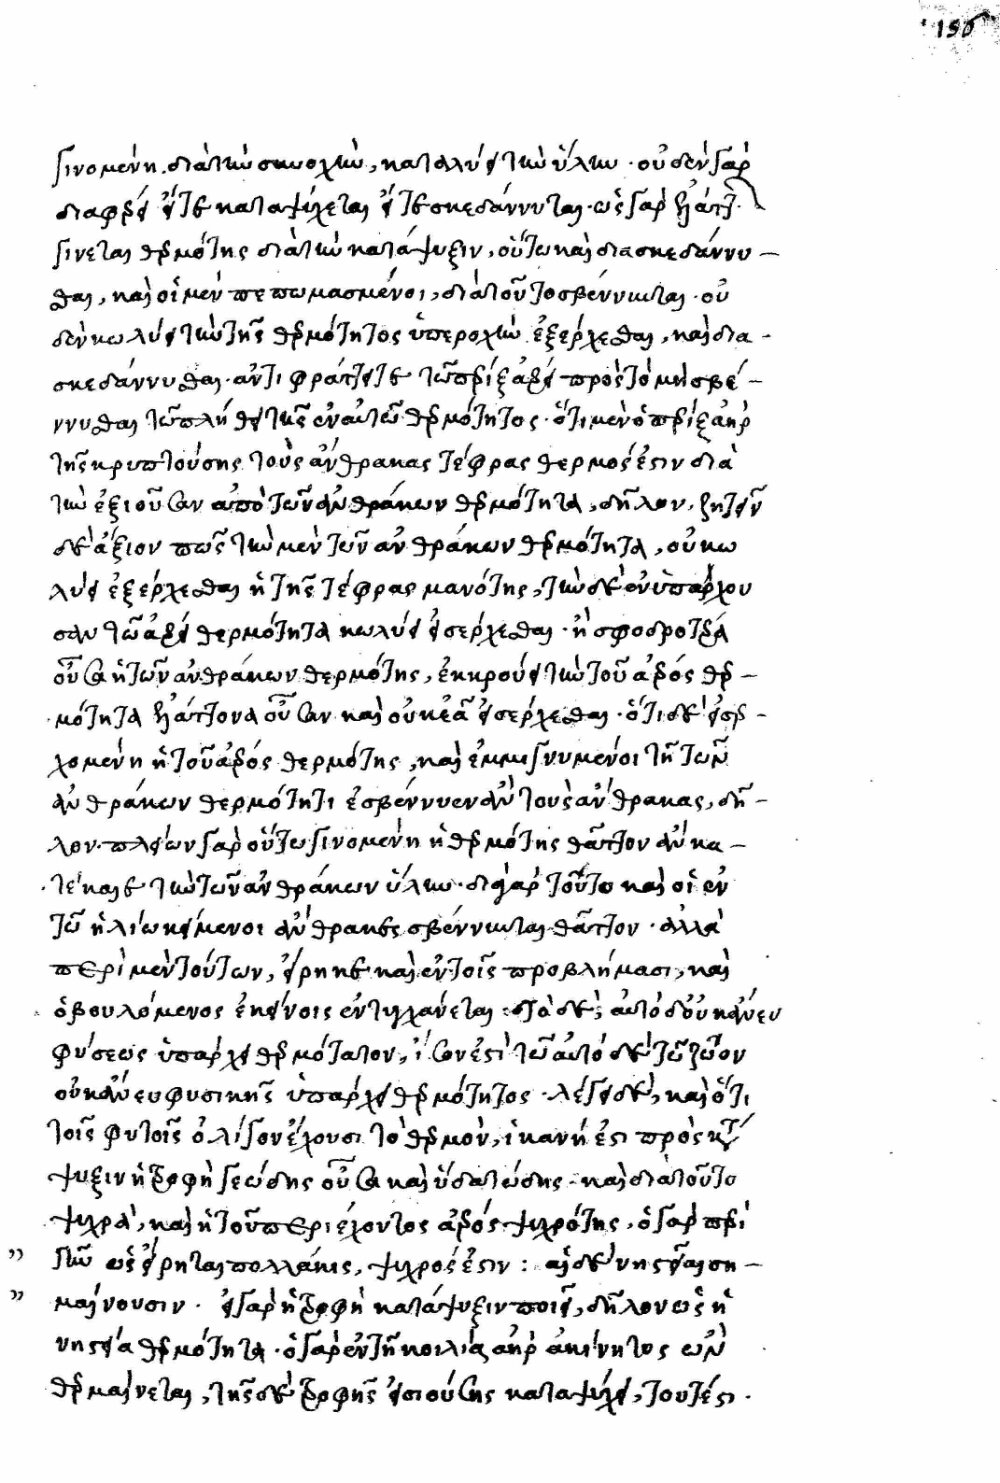 156
γινομένη διὰ τὴν συνοχὴν, καταλύει τὴν ὕλην · οὐδὲν γὰρ
διαφέρει εἴτε καταψύχεται εἴτε σκεδάννυται · ὡς γὰρ ἐλάττων
γίνεται θερμότης διὰ τὴν κατάψυξιν, οὕτω καὶ διασκεδάννυ –
σθαι, καὶ οἱ μὲν πεπωμασμένοι, διὰ τοῦτο σβέννυνται · οὐ
δὲν κωλύει τὴν τῆς θερμότητος ὑπεροχὴν ἐξέρχεσθαι, καὶ δια –
σκεδάννυσθαι · ἀντιφράττει τε τῷ πέριξ ἀέρι πρὸς τὸ μὴ σβέ –
ννυσθαι τῷ πλήθει τῆς ἐν αὐτῷ θερμότητος · ὅτι μὲν ὁ πέριξ ἀὴρ
τῆς κρυπτούσης τοὺς ἄνθρακας τέφρας θερμός ἐστιν διὰ
τὴν ἐξιοῦσαν ἀπὸ τῶν ἀνθράκων θερμότητα, δῆλον, ζητεῖν
δὲ ἄξιον πῶς τὴν μὲν τῶν ἀνθράκων θερμότητα, οὐ κω
λύει ἐξέρχεσθαι ἡ τῆς τέφρας μανότης, τὴν δὲ ἐνυπάρχου
σαν τῷ ἀέρι θερμότητα κωλύει εἰσέρχεσθαι · ἢ σφοδροτέρα
οὖσα ἡ τῶν ἀνθράκων θερμότης, ἐκκρούει τὴν τοῦ ἀέρος θερ –
μότητα ἐλάττονα οὖσαν καὶ οὐκ ἐᾷ εἰσέρχεσθαι · ὅτι δὲ εἰσερ –
χομένη ἡ τοῦ ἀέρος θερμότης, καὶ ἐμμιγνυμένοι τῇ τῶν
ἀνθράκων θερμότητι ἐσβέννυεν ἂν τοὺς ἄνθρακας, δῆ –
λον · πλείων γὰρ οὕτω γινομένη ἡ θερμότης θᾶττον ἂν κα –
τέκαιε τὴν τῶν ἀνθράκων ὕλην · διὰ γὰρ τοῦτο καὶ οἱ ἐν
τῷ ἡλίῳ κείμενοι ἄνθρακες σβέννυνται θᾶττον · ἀλλὰ
περὶ μὲν τούτων, εἴρηκε καὶ ἐν τοῖς προβλήμασι, καὶ
ὁ βουλόμενος ἐκείνοις ἐντυγχανέτω · τὸ δὲ, αὐτὸ δ' οὐκ ἄνευ
φύσεως ὑπάρχει θερμότατον, ἴσον ἐστὶ τῷ αὐτὸ δὲ τὸ ζῷον
οὐκ ἄνευ φυσικῆς ὑπάρχει θερμότητος · λέγει δὲ, καὶ ὅτι
τοῖς φυτοῖς ὀλίγον ἔχουσι τὸ θερμὸν, ἱκανή ἐστι πρὸς κατά
ψυξιν ἡ τροφὴ γεώδης οὖσα καὶ ὑδατώδης · καὶ διὰ τοῦτο
ψυχρὰ, καὶ ἡ τοῦ περιέχοντος ἀέρος ψυχρότης, ὁ γὰρ περὶ
γῆν ὡς εἴρηται πολλάκις, ψυχρός ἐστιν : αἱ δὲ νηστεῖαι ση –
μαίνουσιν · εἰ γὰρ ἡ τροφὴ κατάψυξιν ποιεῖ, δῆλον ὡς ἡ
νηστεία θερμότητα · ὁ γὰρ ἐν τῇ κοιλίᾳ ἀὴρ ἀκίνητος ὢν
θερμαίνεται, τῆς δὲ τροφῆς εἰσιούσης καταψύχει, τουτέστι ·